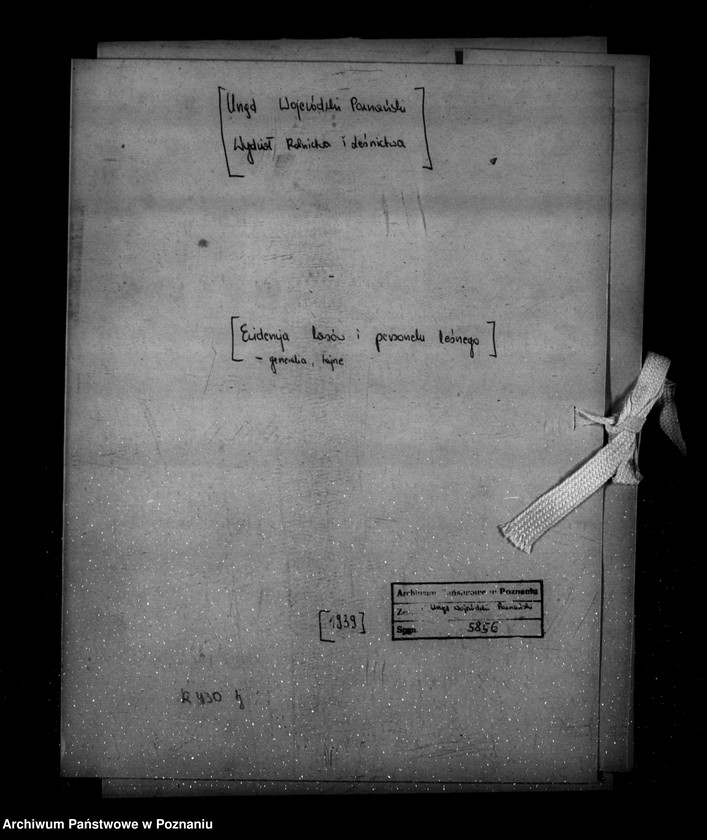 [Urząd Wojewódzki Poznański
Wydział Rolnictwa i Leśnictwa]
[Ewidencja lasów i personelu leśnego]
- generalia, tajne
[1939]
Archiwum Państwowe w Poznaniu
Urząd Wojewódzki Poznański
Sygn. 5856
Archiwum Państwowe w Poznaniu